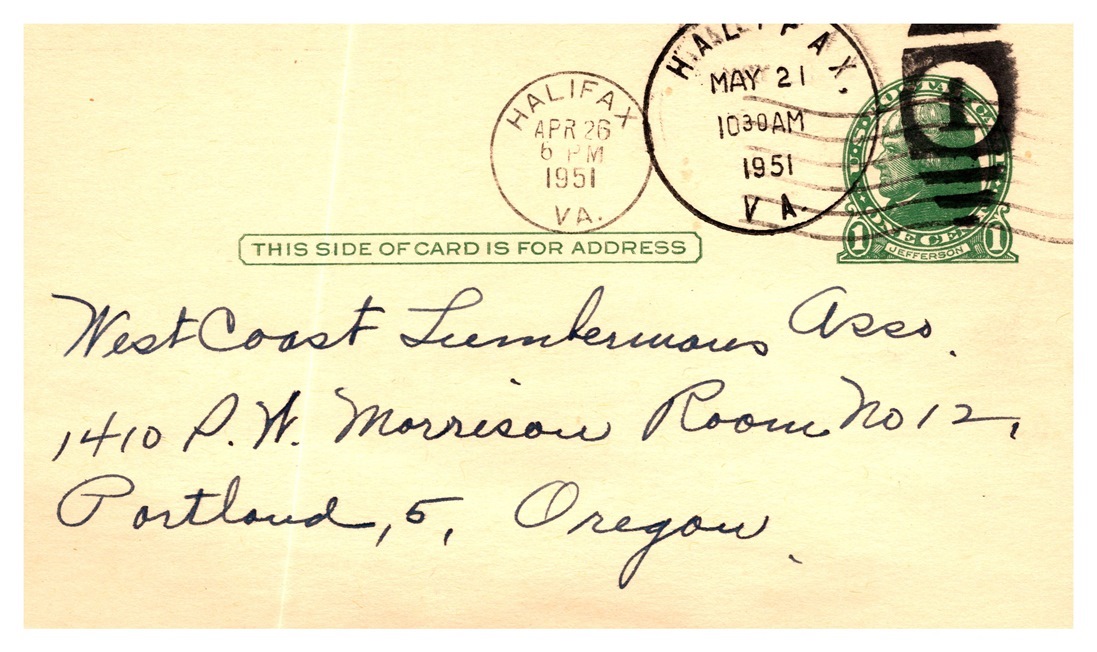 HALIFAX
APR 26
6 PM
1951
VA.
HALIFAX,
MAY 21
10 30 AM
1951
VA.
U.S. POSTAL CARD
1 ONE CENT 1
JEFFERSON
THIS SIDE OF CARD IS FOR ADDRESS
West Coast Lumbermans Asso.
1410 S. W. Morrison Room No 12,
Portland, 5, Oregon.